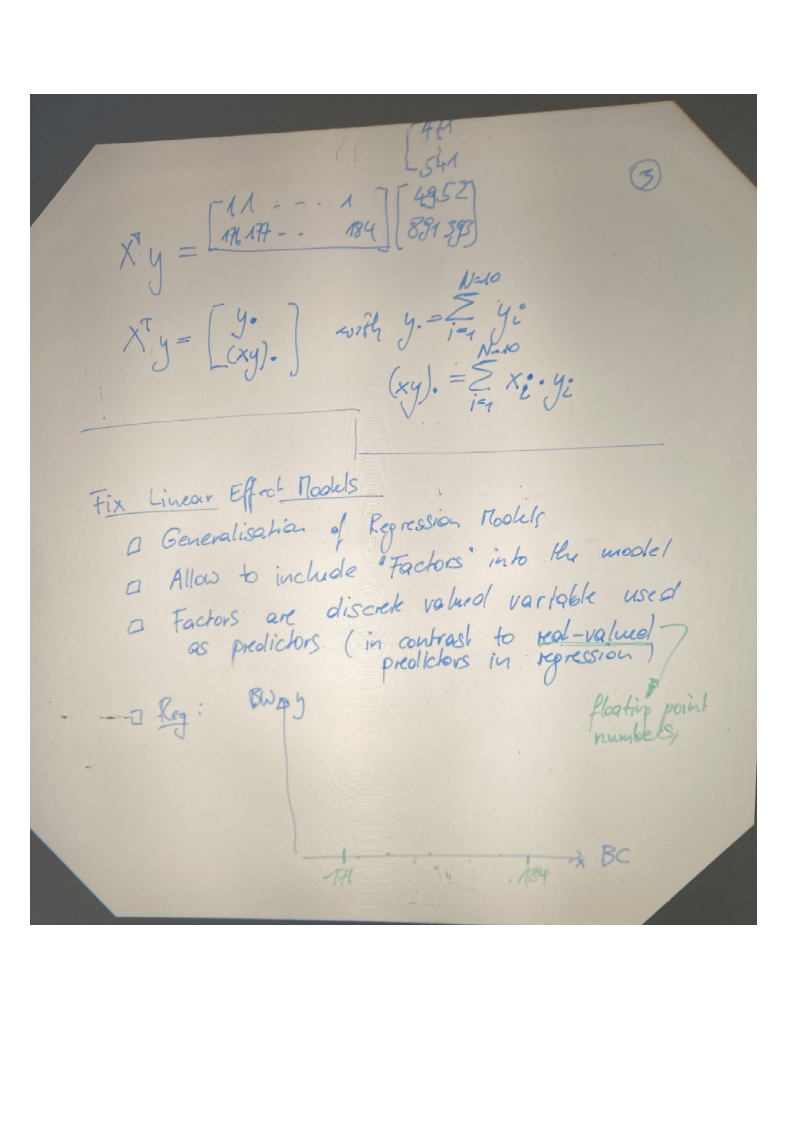 [471
541
③
XᵀY = [1 1 - - . 1
176 177 - . 184] [4952
891 393]
Xᵀy = [y.
(xy).] with y. = Σ yi
N=10
i=1
(xy). = Σ xi · yi
N=10
i=1
Fix Linear Effect Models
□ Generalisation of Regression Models
□ Allow to include "Factors" into the model
□ Factors are discrete valued variable used
as predictors (in contrast to real-valued
predictors in regression)
floating point
numbers,
□ Reg: BW y
x BC
171 184